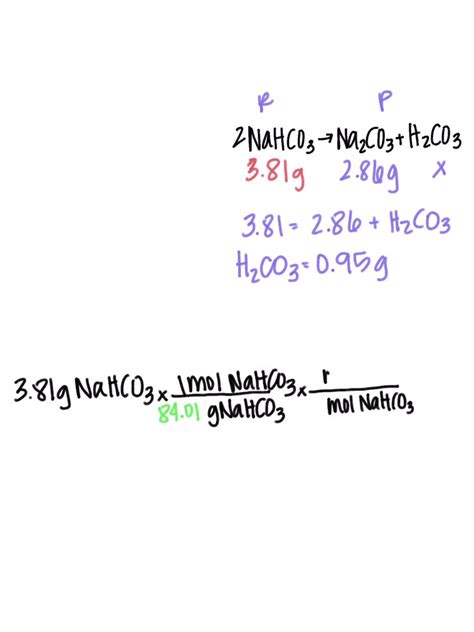 R P
2NaHCO₃→Na₂CO₃+H₂CO₃
3.81g 2.86g x
3.81 = 2.86 + H₂CO₃
H₂CO₃=0.95g
3.81g NaHCO₃ x 1mol NaHCO₃ x r
84.01 gNaHCO₃ mol NaHCO₃